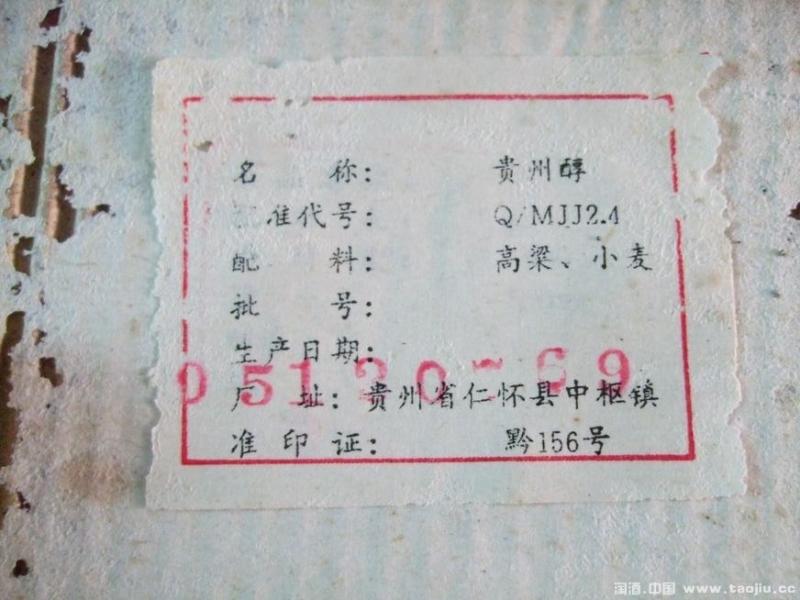 名 称: 贵州醇
准代号: Q/MJJ2.4
配 料: 高梁、小麦
批 号:
生产日期:
厂 址: 贵州省仁怀县中枢镇
准印证: 黔156号
淘酒.中国 www.taojiu.cc